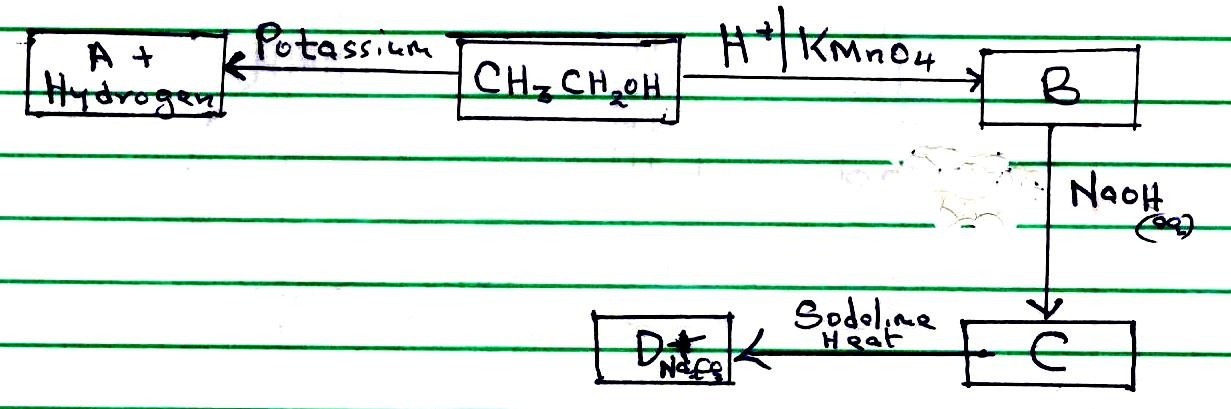 A +
Hydrogen
Potassium
CH3CH2OH
H+/KMnO4
B
NaOH
(aq)
C
Sodalime
Heat
D +
Na2CO3